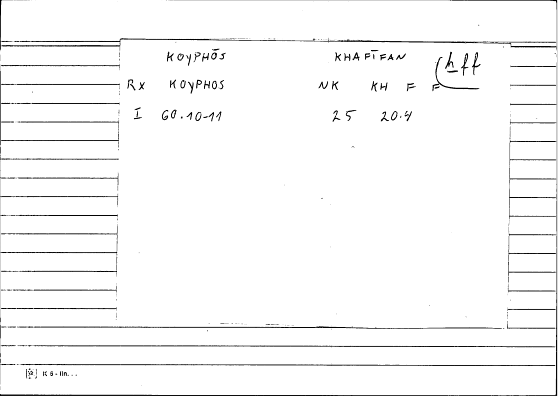 KOYPHŌS KHAFĪFAN ḫff
RX KOYPHOS NK KH F F
I 60.10-11 25 20.4
K 6 - lin...